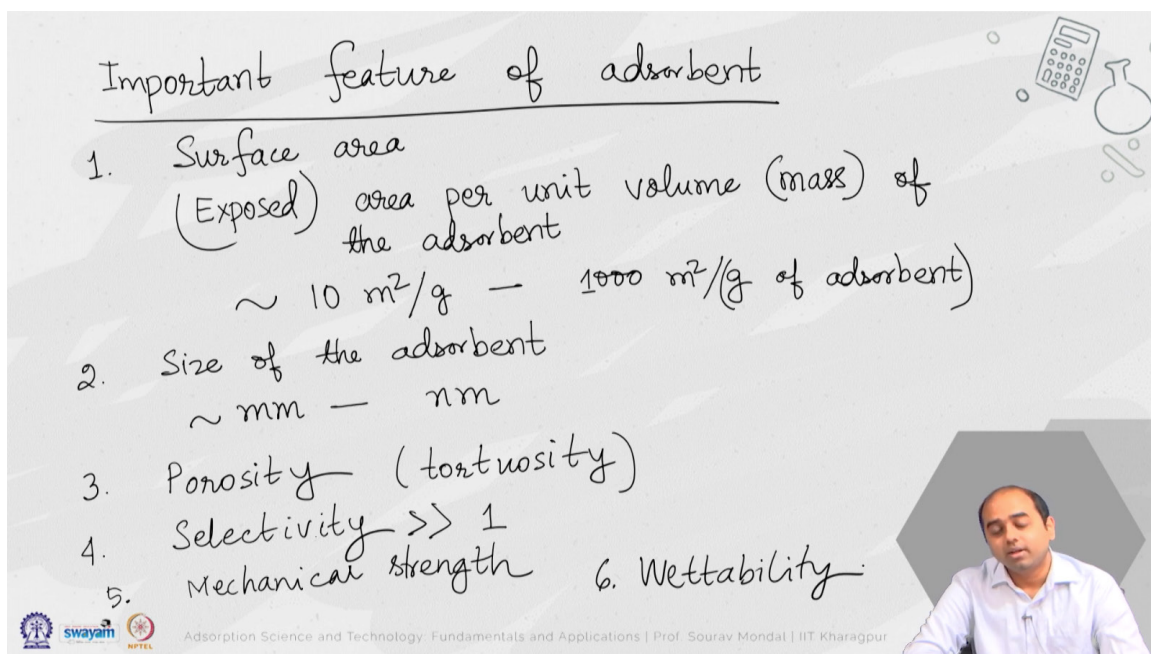 Important feature of adsorbent
1. Surface area
(Exposed) area per unit volume (mass) of
the adsorbent
~ 10 m²/g — 1000 m²/(g of adsorbent)
2. Size of the adsorbent
~ mm — nm
3. Porosity (tortuosity)
4. Selectivity >> 1
5. Mechanical strength 6. Wettability
swayam
NPTEL
Adsorption Science and Technology: Fundamentals and Applications | Prof Sourav Mondal | IIT Kharagpur